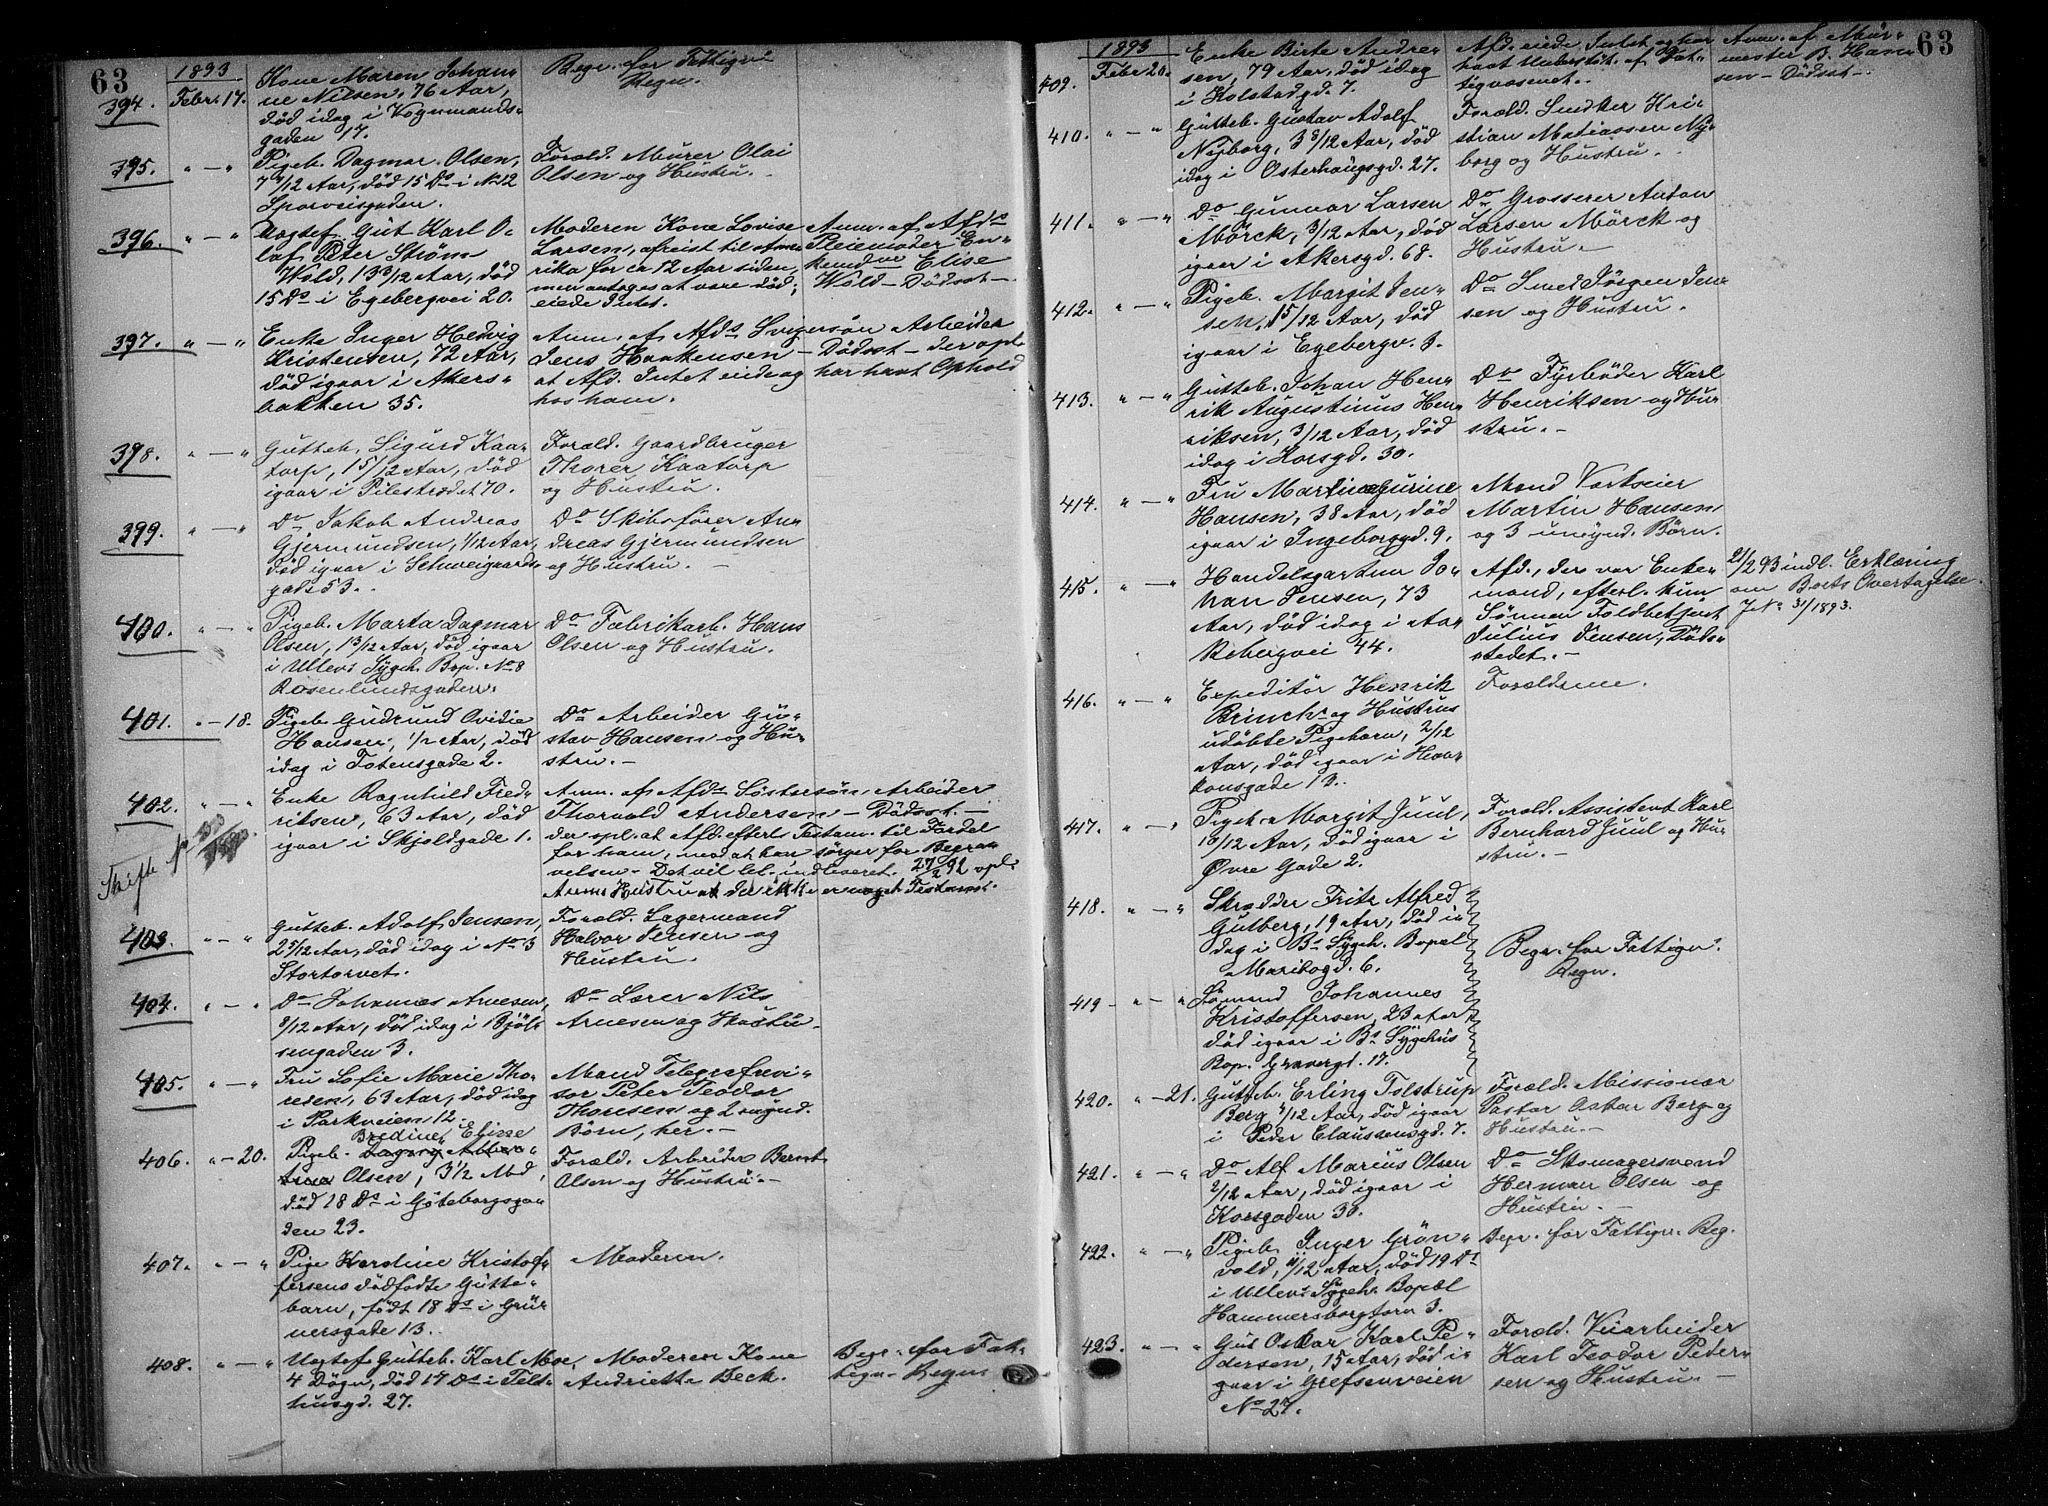 63
1893
394. Febr. 17. Kone Maren Johan-
ne Nilsen, 76 Aar,
død idag i Vognmands-
gaden 17.
Begr. for Fattigv.
Regn.
395. " — " Pigeb. Dagmar Olsen,
7/12 Aar, død 15 Ds i No 12
Sporveisgaden.
Foræld. Murer Olai
Olsen og Hustru.
396. " — " Uægtef. Gut Karl O-
laf Peter Strøm
Wold, 13 3/12 Aar, død
15 Ds i Egebergvei 20.
Moderen Kone Lovise
Larsen, afreist til Ame-
rika for ca 12 Aar siden,
men antages at være død;
eiede Intet.
Anm. af Afds
Pleiemoder En-
kemdme Elise
Wold — Dødsst —
397. " — " Enke Inger Hedvig
Kristensen, 72 Aar,
død igaar i Akers-
bakken 35.
Anm. af Afds Svigersøn Arbeider
Jens Haakensen — Dødsst — der opl.
at Afd. Intet eiede og har havt Ophold
hos ham.
398. " — " Gutteb. Sigurd Kaa-
torp, 15/12 Aar, død
igaar i Pilestrædet 70.
Foræld. Gaardbruger
Thorer Kaatorp
og Hustru.
399. " — " Do Jakob Andreas
Gjermundsen, 1/12 Aar,
død igaar i Schweigaards-
gade 53.
Do Skibsfører An-
dreas Gjermundsen
og Hustru. —
400. " — " Pigeb. Marta Dagmar
Olsen, 13/12 Aar, død igaar
i Ullevs Sygeh. Bop. No 8
Rosenlundsgaden.
Do Fabrikarb. Hans
Olsen og Hustru.
401. " — 18. Pigeb. Gudrund Ovidie
Hansen, 1/2 Aar, død
idag i Totensgade 2.
Do Arbeider Gu-
stav Hansen og Hu-
stru. —
402. " — " Enke Ragnhild Fred-
riksen, 63 Aar, død
igaar i Skjoldgade 1.
Anm. af Afds Søstersøn Arbeider
Thorvald Andersen — Dødsst. —
der opl. at Afd. efterl. Testam. til Fordel
for ham, mod at han sørger for Begra-
velsen. Det vil bl. indleveret. 27/2 92 opl.
Anms Hustru at der ikke er noget Testam.
Skifte
403. " — " Gutteb. Adolf Jensen,
2 5/12 Aar, død idag i No 3
Stortorvet.
Foræld. Lagermand
Halvor Jensen og
Hustru.
404. " — " Do Johannes Arnesen,
9/12 Aar, død idag i Bjøl-
sengaden 3.
Do Lærer Nils
Arnesen og Hustru.
405. " — " Fru Sofie Marie Tho-
resen, 63 Aar, død idag
i Parkveien 12.
Mand Telegrafrevi-
sor Peter Teodor
Thoresen og 2 mynd.
Børn, her. —
406. " — 20. Bredine Elisse
Pigeb. Dagny Alber-
tine Olsen, 3 1/2 Md,
død 18 Ds i Göteborgsga-
den 23.
Foræld. Arbeider Bernt
Olsen og Hustru. —
407. " — " Pige Karoline Kristof-
fersens dødfødte Gutte-
barn, født 18 Ds i Grü-
nersgade 13.
Moderen.
408. " — " Uægtef. Gutteb. Karl Moe,
4 Døgn, død 17 Ds i Telt-
husgd. 27.
Moderen Kone
Andriette Beck.
Begr. for Fat-
tigv. Regn.
63
1893
409. Febr 20. Enke Birte Andre-
sen, 79 Aar, død idag
i Kolstadgd. 7.
Afd. eiede Intet og har
havt Understøt. af Fat-
tigvæsenet.
Anm. af Mur-
mester B. Han-
sen — Dødsst —
410. " — " Gutteb. Gustav Adolf
Nyborg, 3 8/12 Aar, død
idag i Osterhausgd. 27.
Foræld. Snedker Kri-
stian Matiassen Ny-
borg og Hustru.
411. " — " Do Gunnar Larsen
Mörck, 3/12 Aar, død
igaar i Akersgd. 68.
Do Grosserer Anton
Larsen Mörck og
Hustru. —
412. " — " Pigeb. Margit Jen-
sen, 15/12 Aar, død
igaar i Egebergv. 3.
Do Smed Jørgen Jen-
sen og Hustru.
413. " — " Gutteb. Johan Hen-
rik Augustinus Hen-
riksen, 3/12 Aar, død
idag i Korsgd. 30.
Do Fyrbøder Karl
Henriksen og Hu-
stru. —
414. " — " Fru Martine Gurine
Hansen, 38 Aar, død
igaar i Ingeborggd. 9.
Mand Værtseier
Martin Hansen
og 3 umynd. Børn.
415. " — " Handelsgartner Jo-
han Jensen, 73
Aar, død idag i Aa-
kebergvei 44.
Afd., der var Enke-
mand, efterl. kun
Sønnen Toldbetjent
Julius Jensen, Døds-
stedet. —
21/2 93 indl. Erklæring
om Boets Overtagelse.
J No 31/1893.
416. " — " Expeditør Henrik
Brinchs og Hustrus
udøbte Pigebarn, 2/12
Aar, død igaar i Haa-
konsgade 13.
Forældrene.
417. " — " Pigeb. Margit Juul,
10/12 Aar, død igaar i
Øvre Gade 2.
Foræld. Assistent Karl
Bernhard Juul og Hu-
stru. —
418. " — " Skrædder Fritz Alfred
Gulberg, 19 Aar, død i-
dag i Bs Sygeh. Bopæl
Maribogd. 6.
Begr. for Fattigv.
Regn.
419 " — " Sømand Johannes
Kristoffersen, 23 Aar
død igaar i Bs Sygehus
Bop. Grønvergt. 17.
420. " — 21. Gutteb. Erling Tolstrup
Berg, 4/12 Aar, død igaar
i Peder Claussensgd. 7.
Foræld. Missionær
Pastor Oskar Berg og
Hustru. —
421. " — " Do Alf Marius Olsen
2/12 Aar, død igaar i
Korsgaden 30.
Do Skomagersvend
Herman Olsen og
Hustru. —
422. " — " Pigeb. Inger Grøn-
vold, 11/12 Aar, død 19 Ds
i Ullevs Sygeh. Bopæl
Hammersborgtorv 3.
Begr. for Fattigv. Reg.
423. " — " Gut Oskar Karl Pe-
dersen, 15 Aar, død i-
gaar i Grefsenveien
No 27.
Foræld. Veiarbeider
Karl Teodor Peder-
sen og Hustru. —